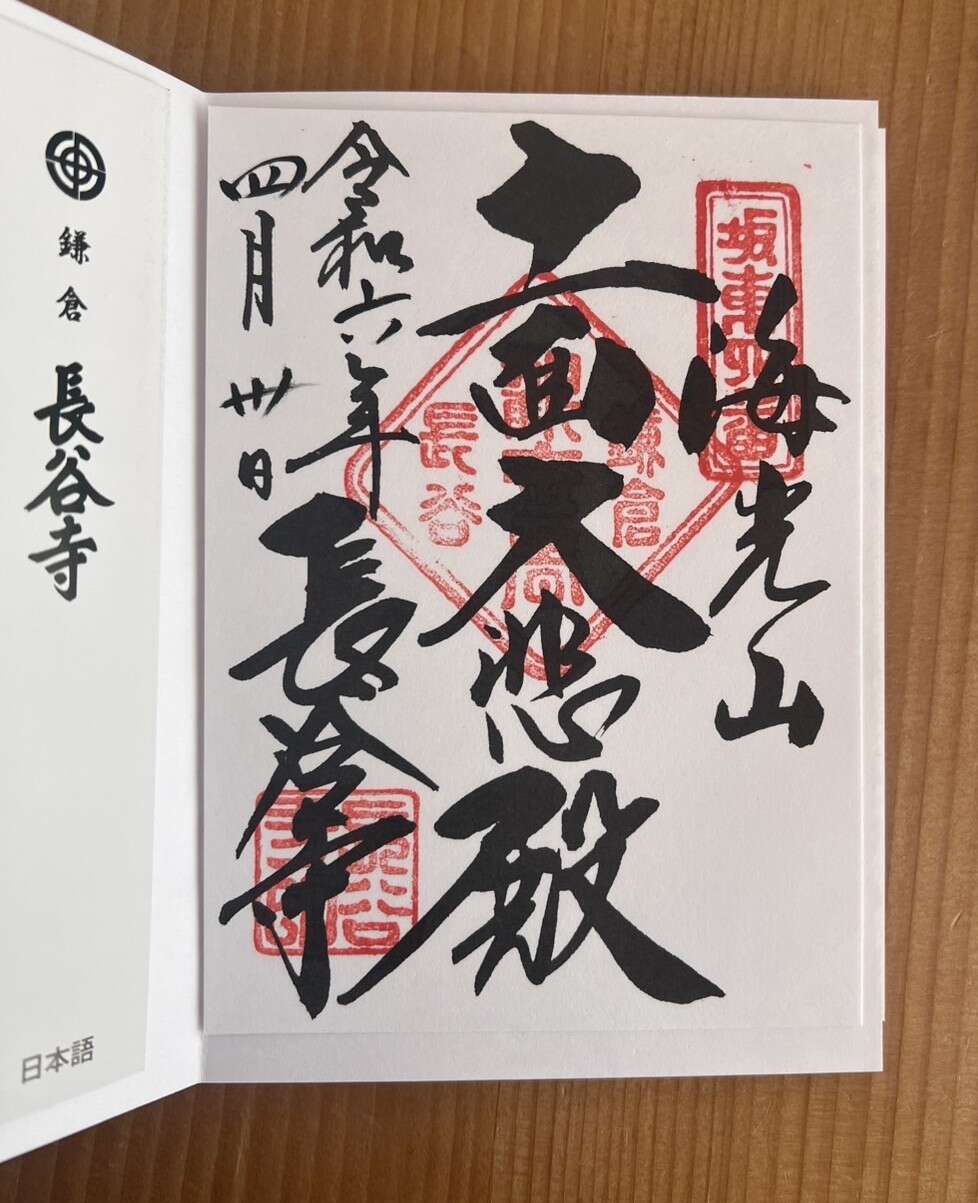 鎌倉 長谷寺
日本語
坂東
海光山
十一面大悲殿
鎌倉
長谷
令和六年
四月卅日
長谷寺